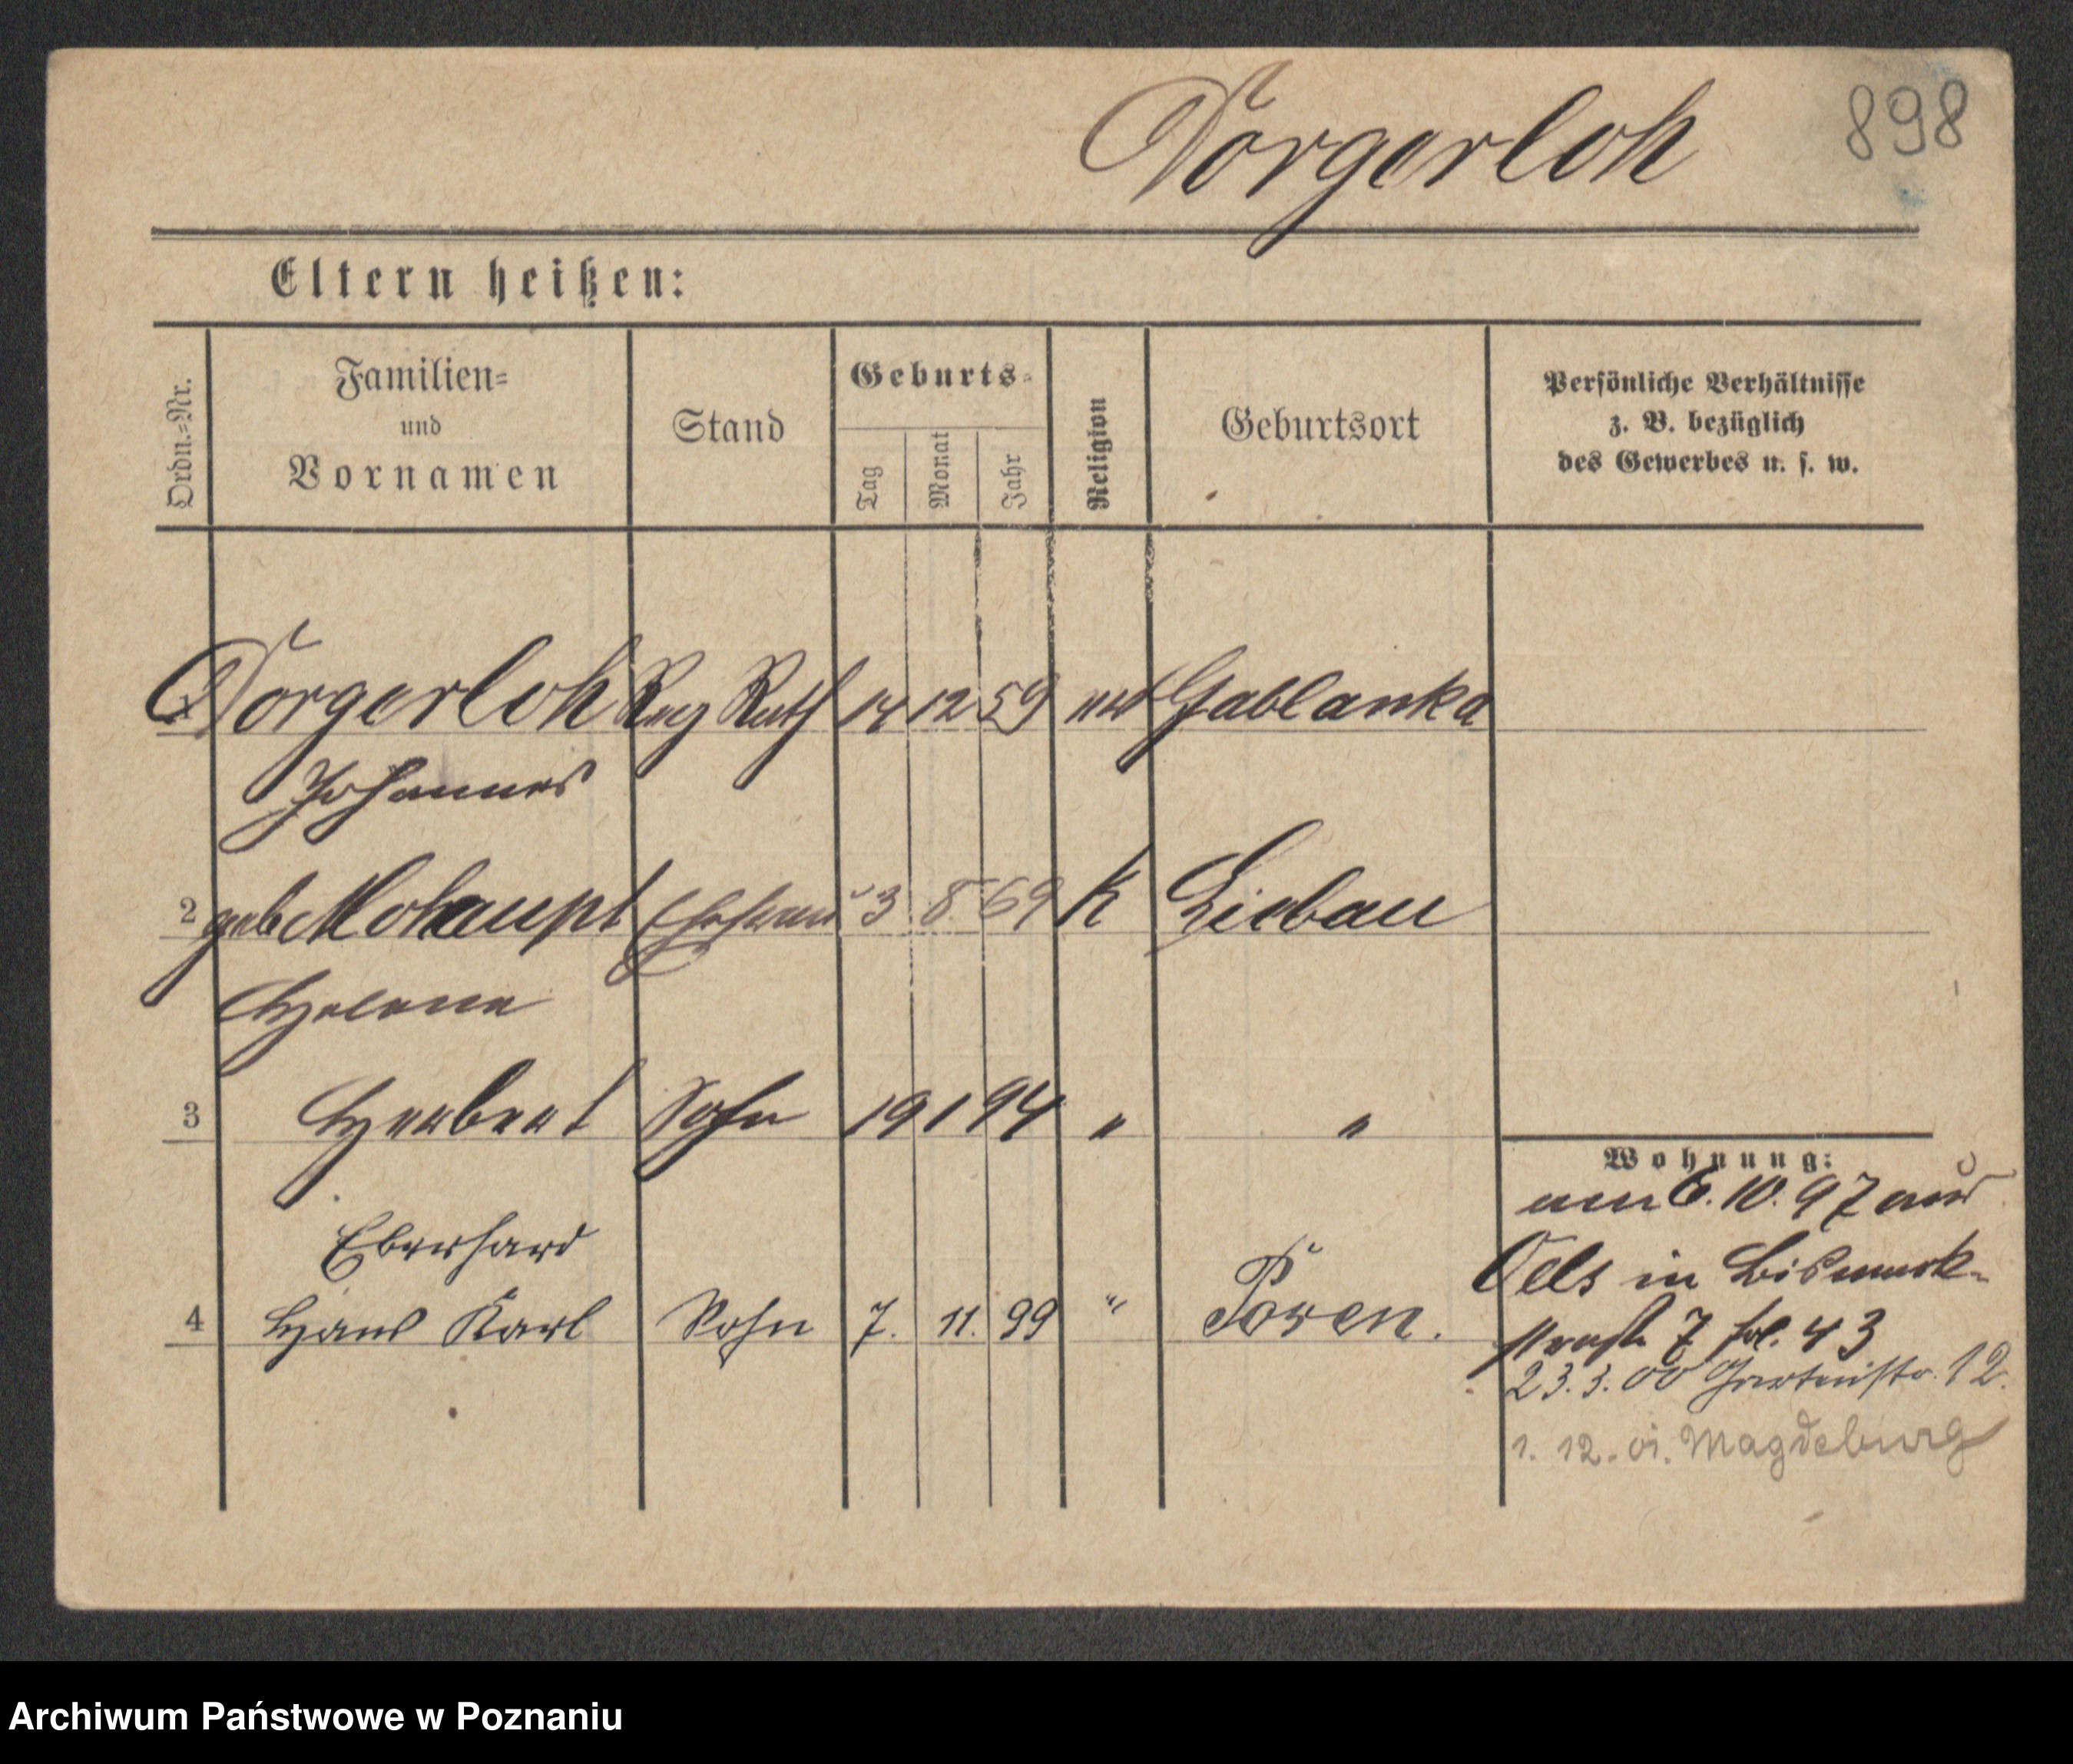 Dörgerloh
898
Eltern heißen:
Ordn.=Nr.
Familien=
und
Vornamen
Stand
Geburts=
Tag
Monat
Jahr
Religion
Geburtsort
Persönliche Verhältnisse
z. B. bezüglich
des Gewerbes u. s. w.
1 Dörgerloh Reg Rath 14 12 59 Jablanka
Johannes
2 geb Mohaupt Ehefrau 3 8 69 K Liebau
Helene
3 Herbert Sohn 19 1 94 " "
Eberhard
4 Hans Karl Sohn 7. 11. 99 " Posen.
Wohnung:
am 6. 10. 97 aus
Oels in Bismark-
straße 7 fol. 43
23. 3. 00 Gartenstr. 12.
1. 12. 01. Magdeburg
Archiwum Państwowe w Poznaniu